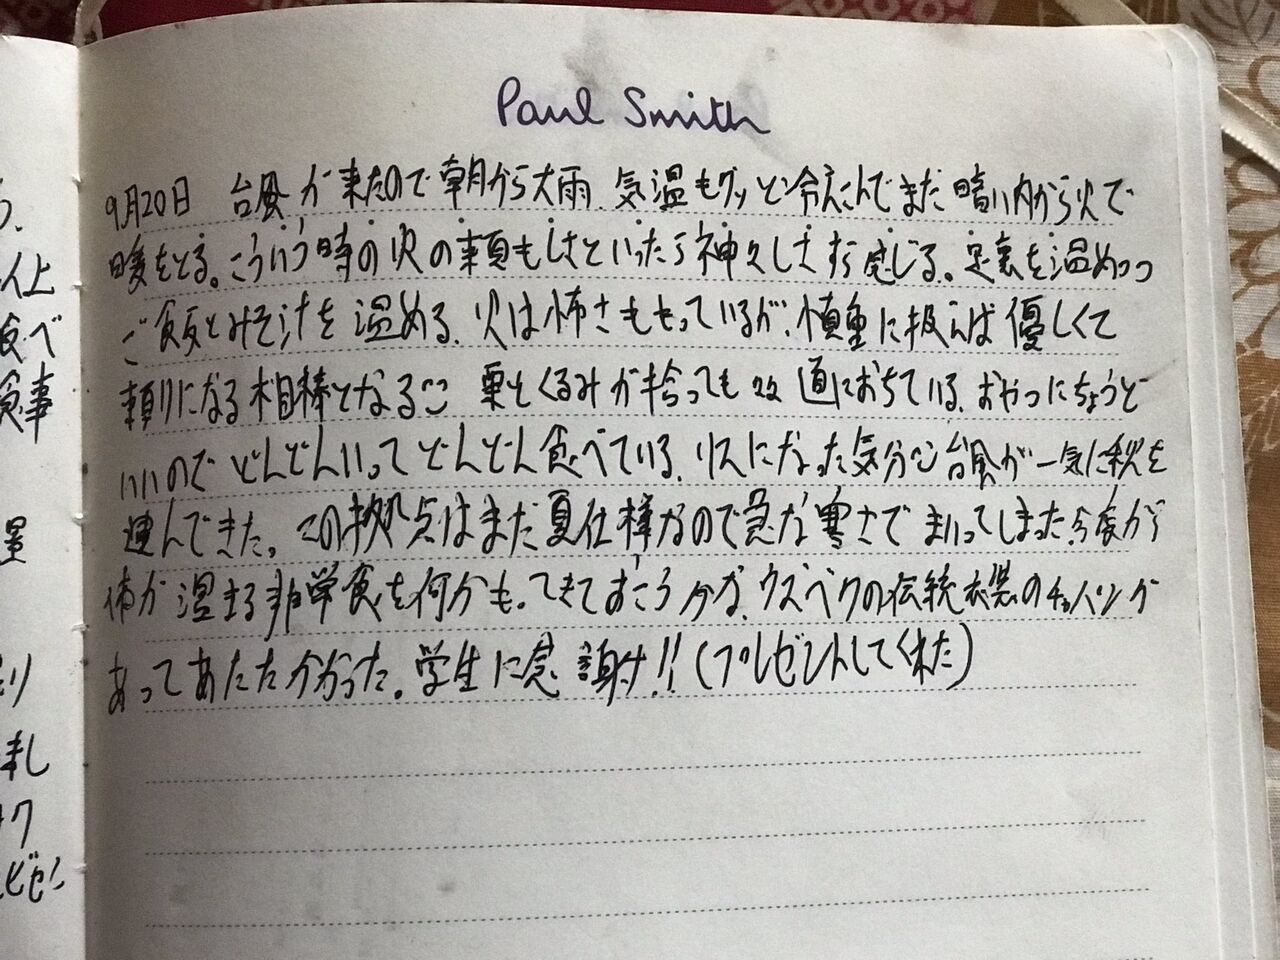 Paul Smith
9月20日 台風が来たので朝から大雨.気温もグッと冷えこんでまだ暗い内から火で
暖をとる。こういう時の火の頼もしさといったら神々しさすら感じる。足裏を温めつつ
ご飯とみそ汁を温める.火は怖さももっているが、慎重に扱えば優しくて
頼りになる相棒となる 栗とくるみが拾っても 直におちている.おやつにちょうど
いいのでどんどんひろってどんどん食べている.リスになった気分 台風が一気に秋を
運んできた。この拠点はまだ夏仕様なので急な寒さでまいってしまった.今度から
体が温まる非常食を何かもってきておこうかな.ウズベクの伝統衣装のチャパンが
あってあたたかかった。学生に感謝!!(プレゼントしてくれた)
う.
人上
食べ
食事
量
り
ク